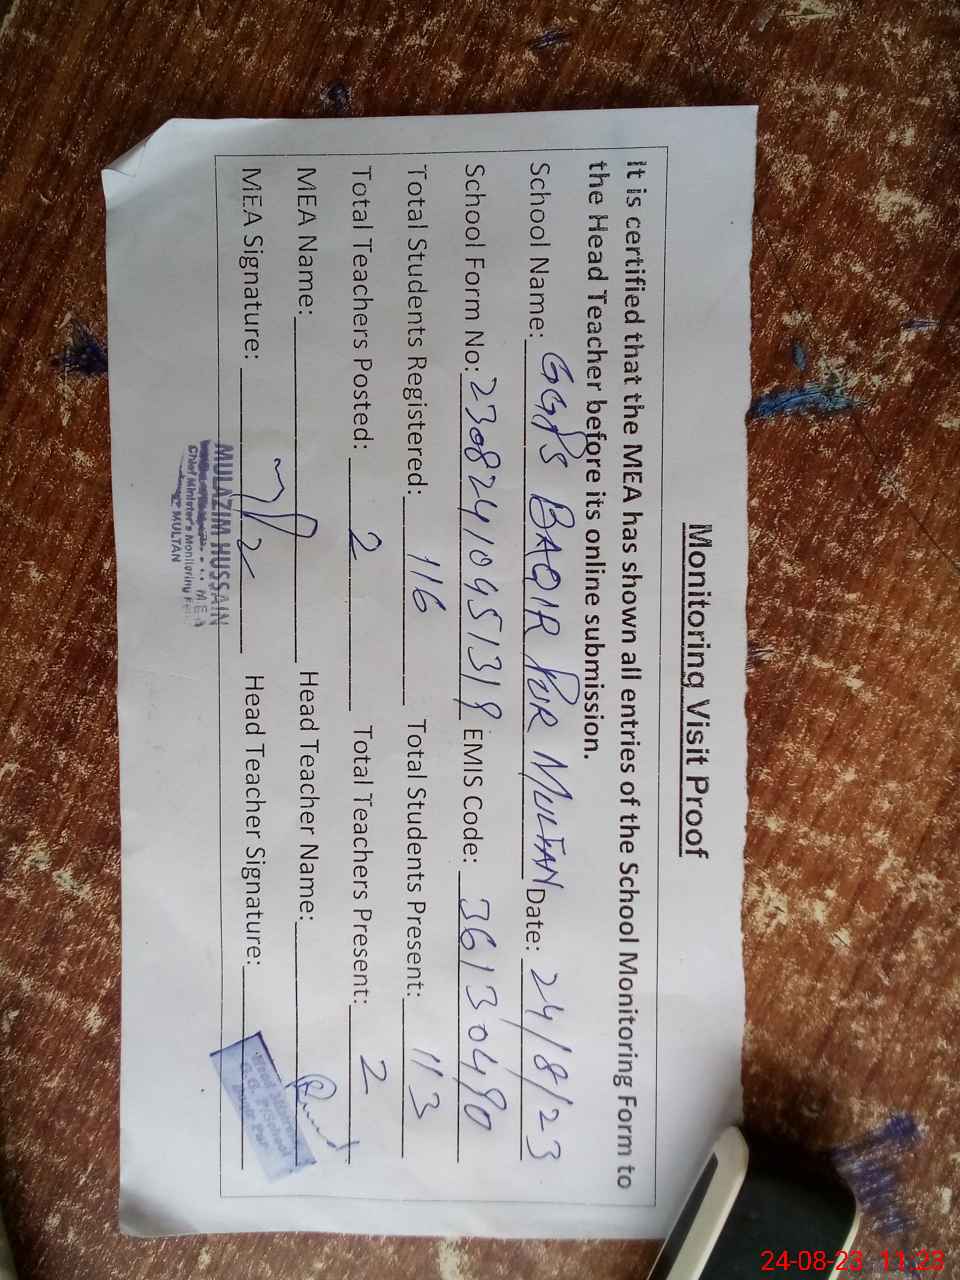 Monitoring Visit Proof
It is certified that the MEA has shown all entries of the School Monitoring Form to
the Head Teacher before its online submission.
School Name: GGPS BAQIR PUR MULTAN Date: 24/8/23
School Form No: 23082410951319 EMIS Code: 36130490
Total Students Registered: 116 Total Students Present: 113
Total Teachers Posted: 2 Total Teachers Present: 2
MEA Name: Head Teacher Name:
MEA Signature: Head Teacher Signature:
MULAZIM HUSSAIN
MEA
Chief Minister's Monitoring
MULTAN
24-08-23 11:23